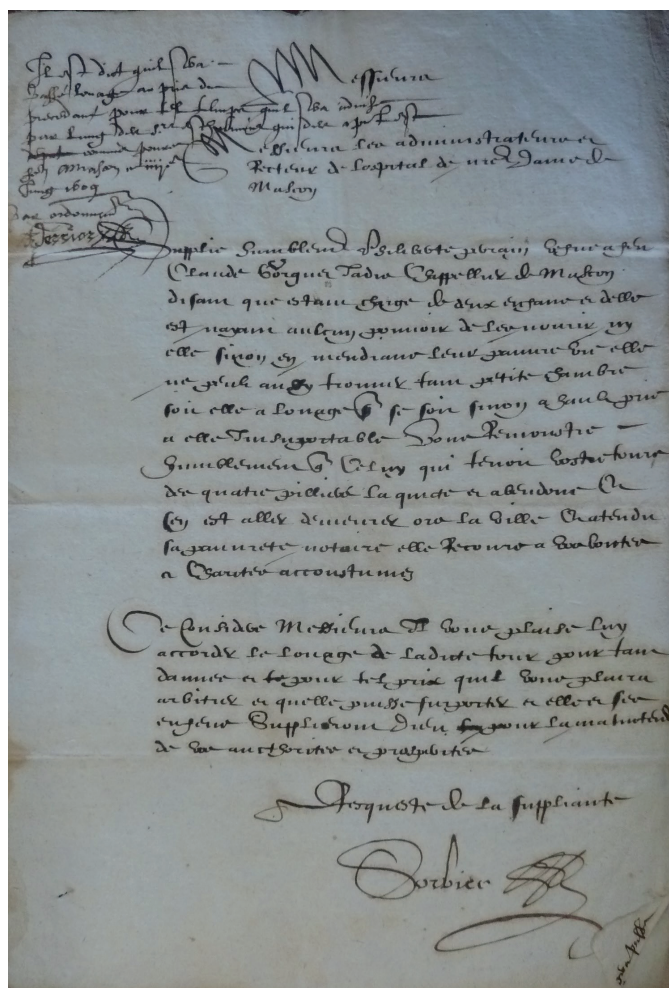 Il est dict quil sera
passé louage au pris de
precedant pour tel temps quil sera advisé
par lung des srs qui
Mascon
Juing 1609
par ordonnance
Terrier
Messieurs
Messieurs les administrateurs et
Recteur de lospital de nre Dame de
Mascon
Supplie humblement Philiberte vefve a feu
Claude Jadis Chappellier de Mascon
disant que estant charge de deux enfans et delle
est nayant aulcun pouvoir de les nourir ny
elle sinon en mendians leur pauvre vie elle
ne peult trouver tant petite chambre
soit elle a louage que se soit sinon a hault pris
a elle Insuportable Vous Remonstre
humblement que Celuy qui tenoit vostre tour
des quatre pilliers la quicte et abandone Et
sen est aller demeurer ors la ville Et atendu
sa pauvrete notoire elle Recours a voz bontes
et Charites accoustumes
Ce Considere Messieurs Il vous plaise luy
accorder le louage de ladicte tour pour tant
dannees et pour tel pris quil vous plaira
arbitrer et quelle puisse suporter et elle et ses
enfans Supplieront Dieu pour la
de voz aucthorites et prosperites
Requeste de la suppliante
Sorbier